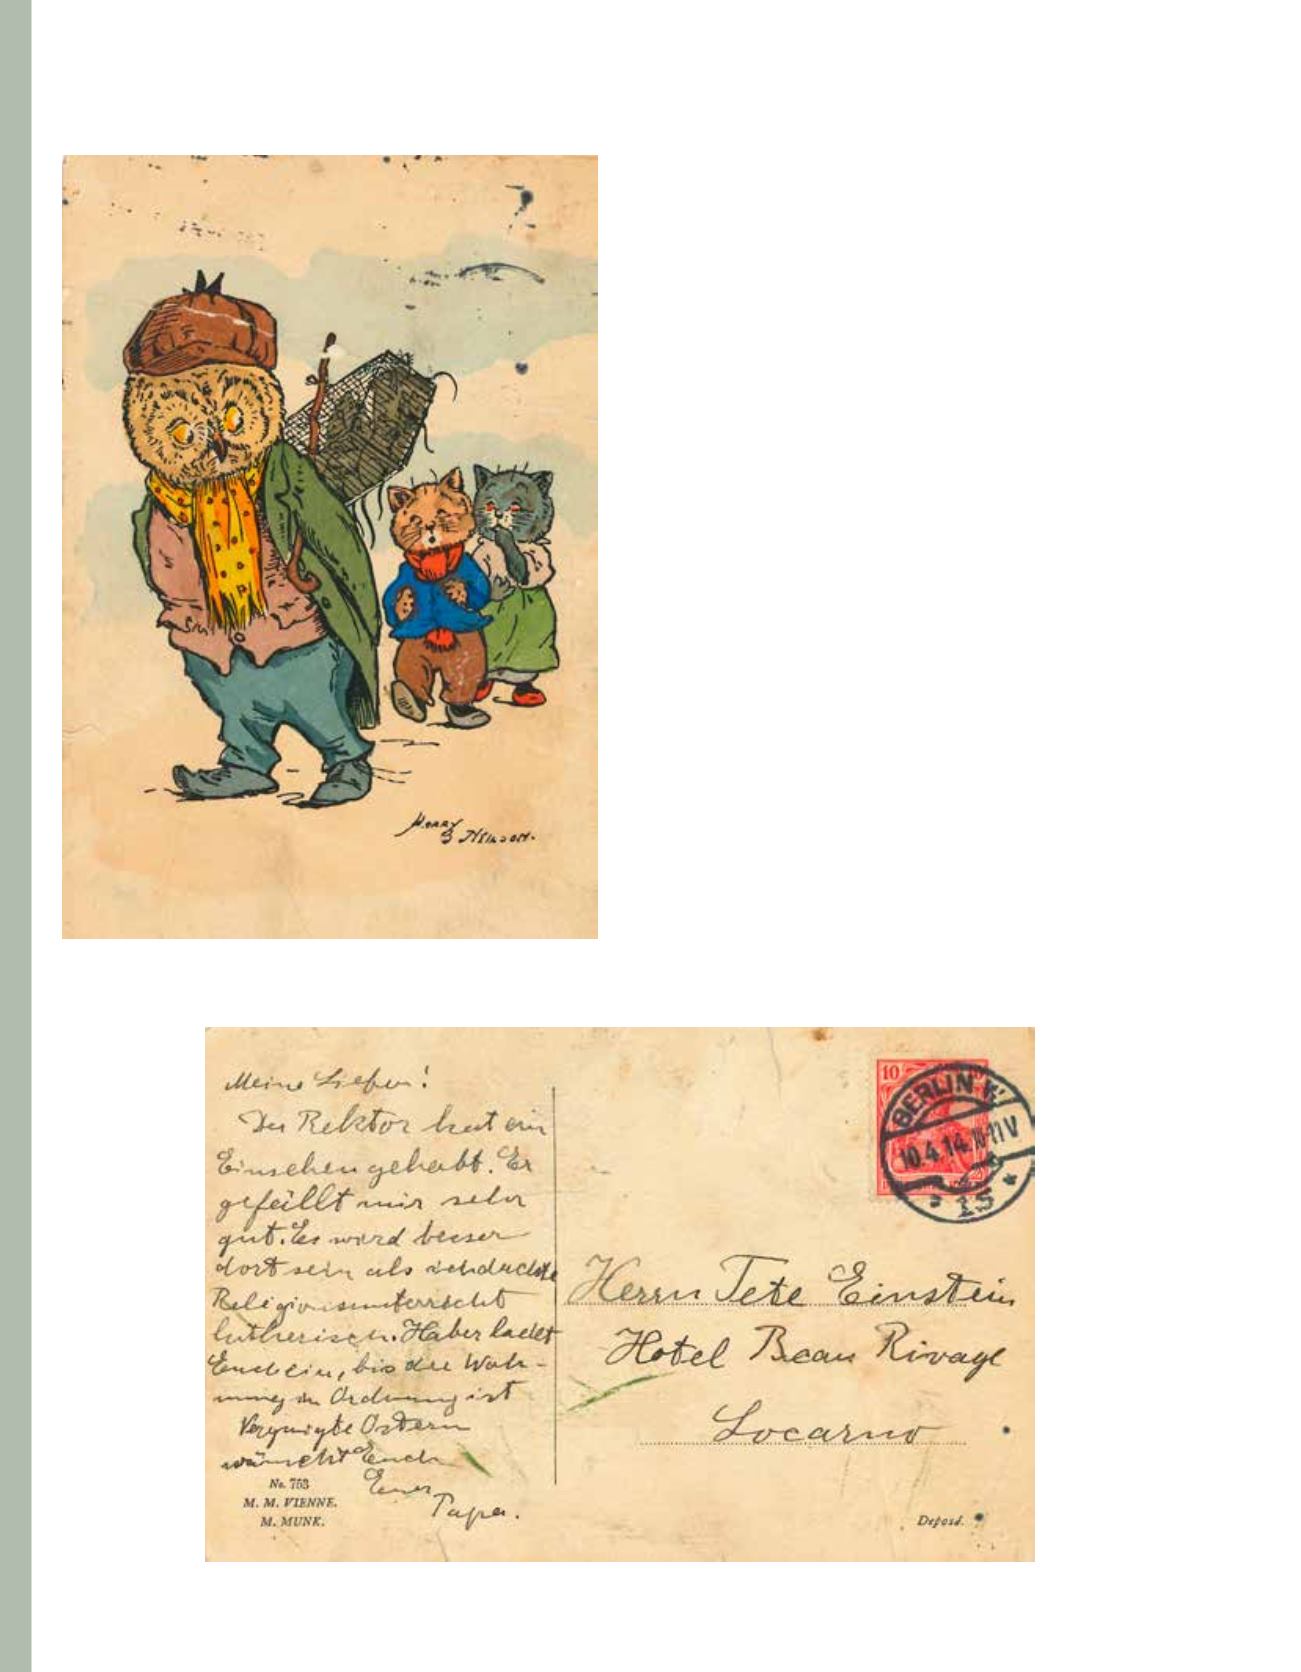 Harry B Neilson.
Meine Lieben!
Der Rektor hat ein
Einsehen gehabt. Er
gefällt mir sehr
gut. Es wird besser
dort sein als ich dachte
Religionsunterricht
lutherisch. Haber ladet
Euch ein, bis die Woh-
nung in Ordnung ist
Vergnügte Ostern
wünscht Euch
Euer
Papa.
No. 753
M. M. VIENNE.
M. MUNK.
10
BERLIN W
10.4.14.10-11V
15
Herrn Tete Einstein
Hotel Beau Rivage
Locarno
Deposé.